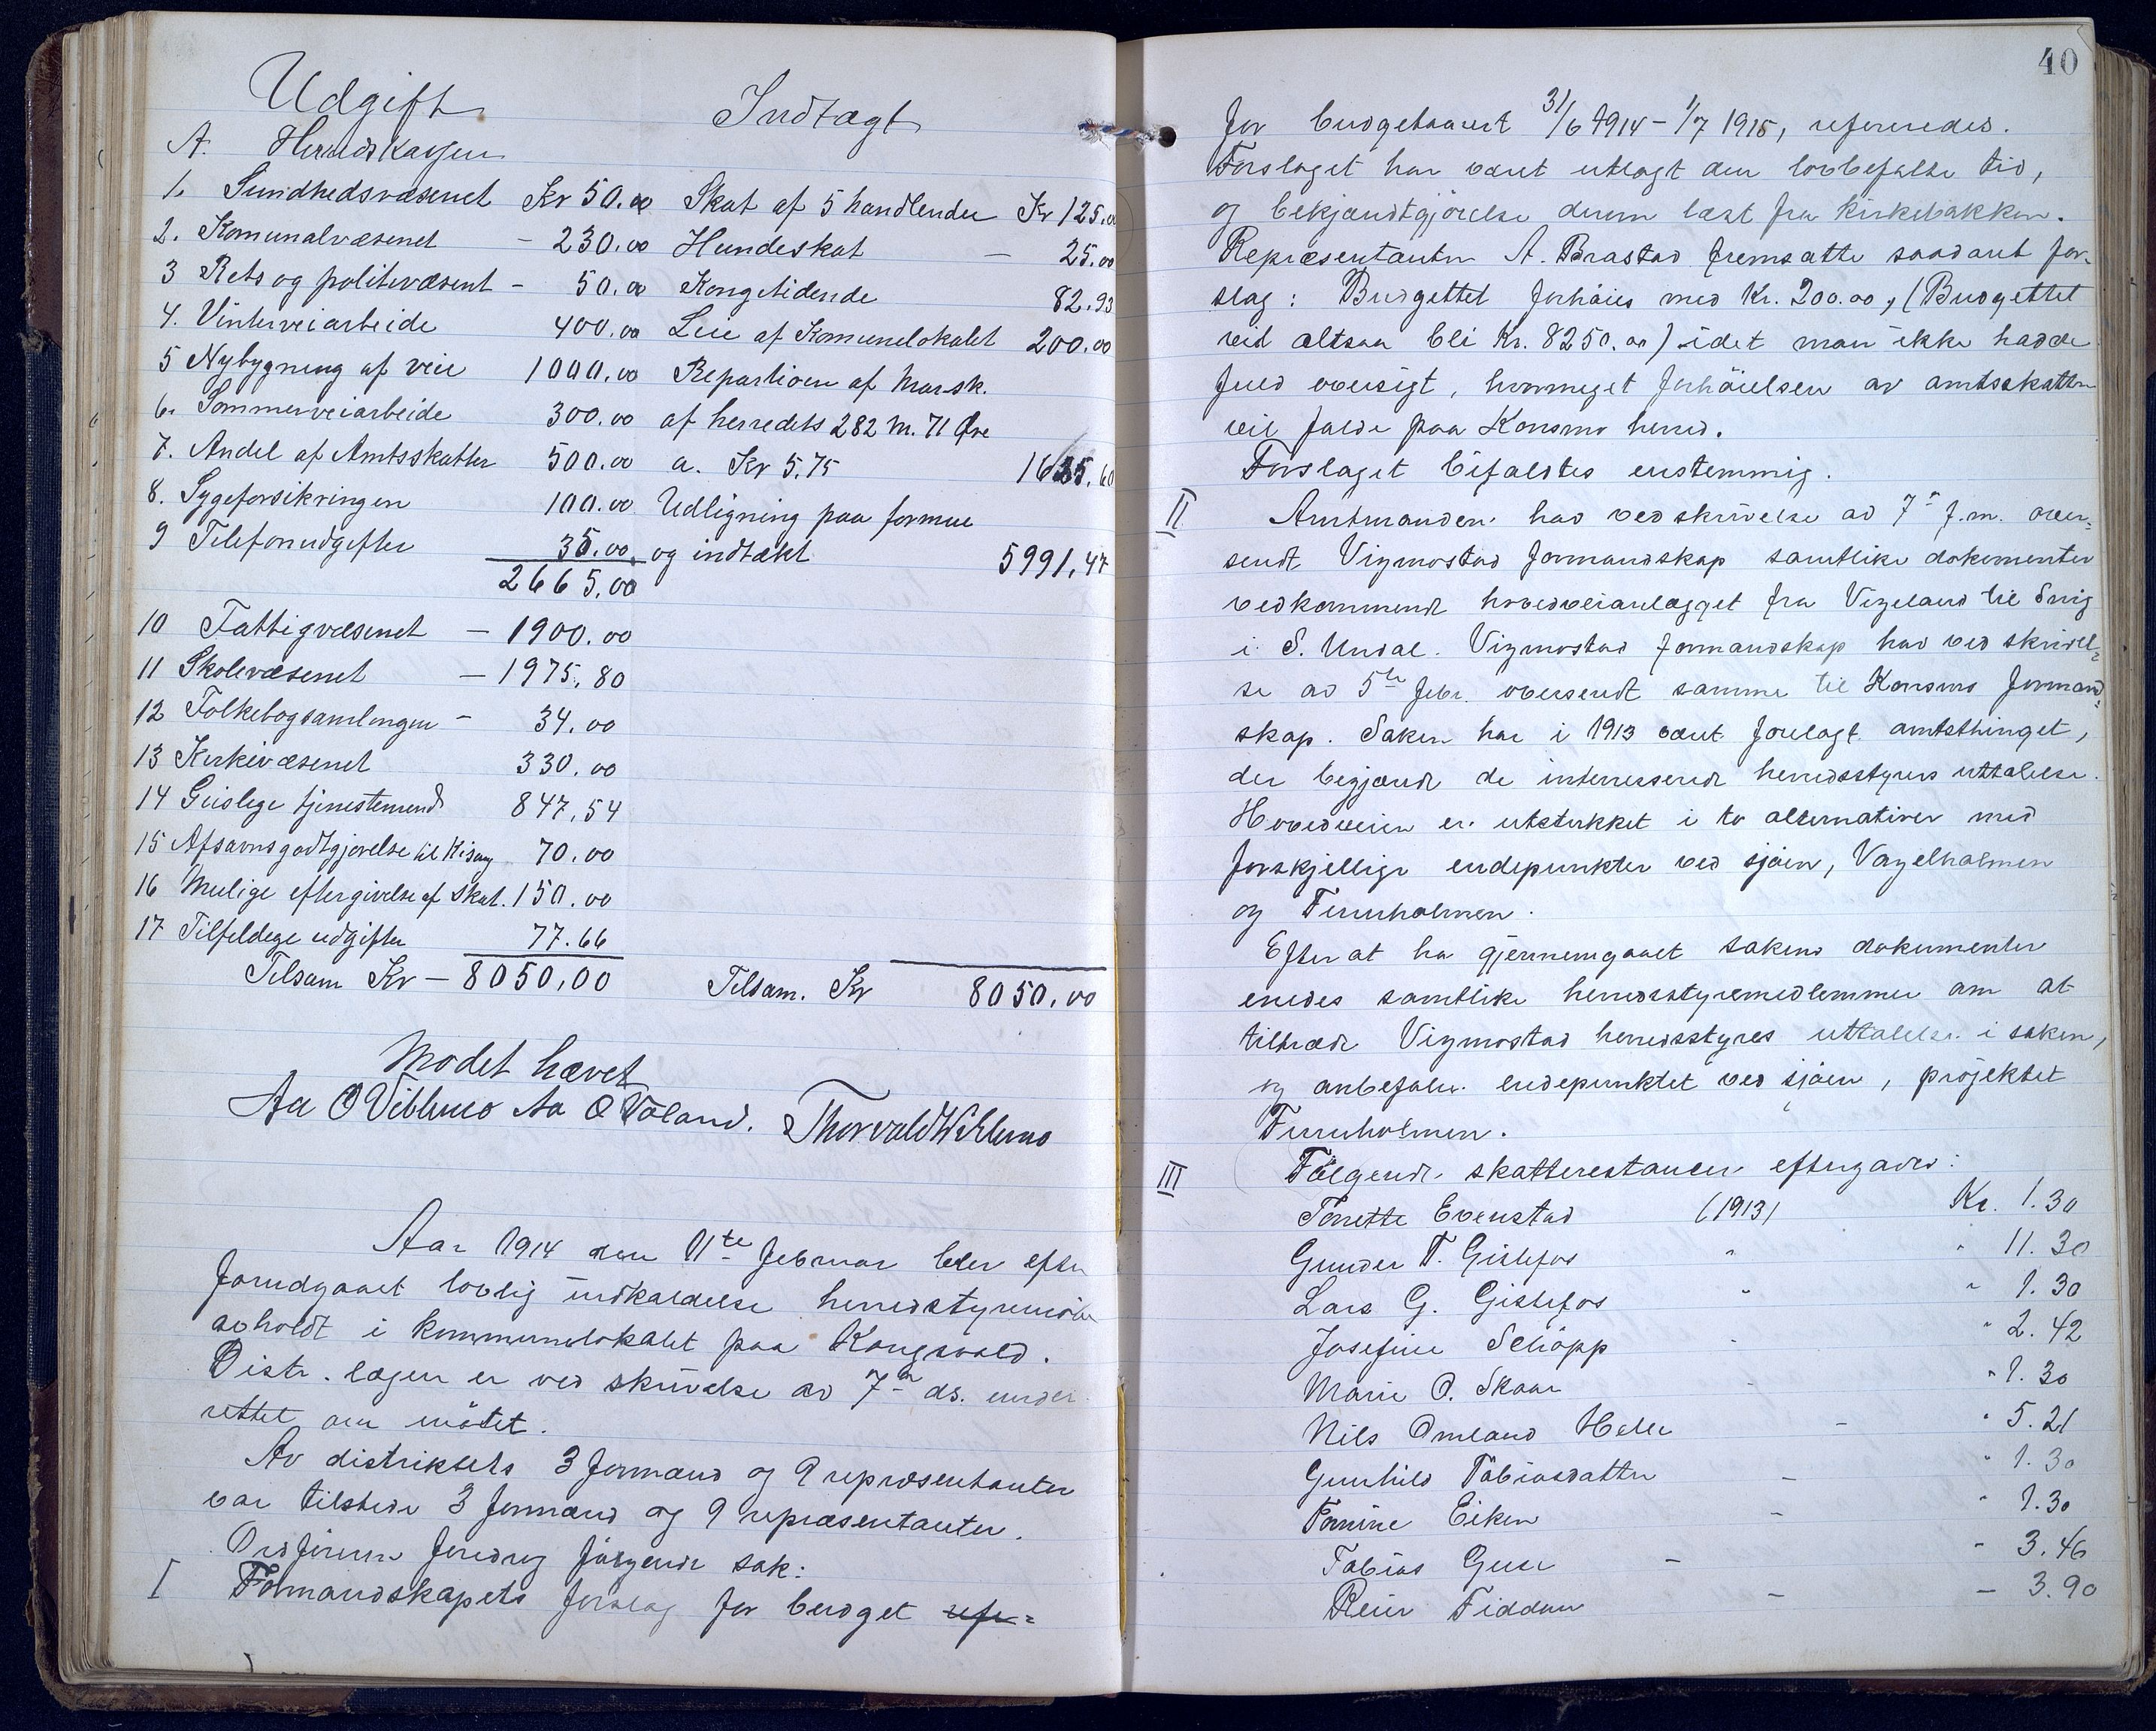 Udgift
Indtægt
A. Herredskassen
1. Sundhedsvæsenet Kr 50.00 Skat af 5 handlende Kr 125.00
2. Komunalvæsenet - 230.00 Hundeskat - 25.00
3 Rets og politivæsent - 50.00 Kongetidende 82.93
4. Vinterveiarbeide 400.00 Leie af Komunelokalet 200.00
5 Nybygning af veie 1000.00 Repartioen af Marsk.
6. Sommerveiarbeide 300.00 af herredets 282 M. 71 Øre
7. Andel af Amtsskatter 500.00 a. Kr 5.75 1625.60
8. Sygeforsikringen 100.00 Udligning paa formue
9 Telefonudgifter 35.00 og indtækt 5991,47
2665,00
10 Fattigvæsenet - 1900.00
11 Skolevæsenet - 1975,80
12 Folkebogsamlingen - 34.00
13 Kirkevæsenet 330.00
14 Geislege tjenestemend 847,54
15 Afsavnsgodtgjørelse til Kisang 70.00
16 Mulige eftergivelse af Skat. 150.00
17 Tilfeldege udgifter 77.66
Tilsam Kr - 8050,00 Tilsam. Kr 8050.00
Modet hævet
Aa O Viblemo Aa O Voland. Thorvald Wiblemo
Aar 1914 den 11te februar blev efter
forudgaaet lovlig indkaldelse herredstyremöte
avholdt i kommunelokalet paa Kongsvold.
Distr. lægen er ved skrivelse av 7de ds. under-
rettet om mötet.
Av distriktets 3 formænd og 9 repræsentanter
var tilstede 3 formænd og 9 repræsentanter.
Ordföreren foredrog fölgende sak:
I Formandskapets forslag for budget refe=
40
for budgetaaret 31/6 1914 - 1/7 1915, refereredes.
Forslaget har været utlagt den lovbefalte tid,
og bekjendtgjörelse derom læst fra kirkebakken.
Repræsentanten A. Brastad fremsatte saadant for-
slag: Budgettet forhöies med Kr. 200.00, (Budgettet
vil altsaa bli Kr. 8250.00) idet man ikke hadde
fuld oversigt, hvormeget forhöielsen av amtsskatten
vil falde paa Konsmo herred.
Forslaget bifaldtes enstemmig.
II Amtmanden har ved skrivelse av 7de f.m. over-
sendt Vigmostad formandskap samtlike dokumenter
vedkommende hovedveianlægget fra Vigeland til Svig
i S. Undal. Vigmostad formandskap har ved skrivel-
se av 5te febr. oversendt samme til Konsmo formand-
skap. Saken har i 1913 været forelagt amtsthinget,
der begjærede de interesserede herredsstyrers uttalelse.
Hovedveien er utstukket i to alternativer med
forskjellige endepunkter ved sjöen, Vagelholmen
og Furuholmen.
Efter at ha gjennemgaaet sakens dokumenter
enedes samtlike herredsstyremedlemmer om at
tiltræde Vigmostad herredsstyres uttalelse i saken,
og anbefaler endepunktet ved sjöen, pröjektet
Furuholmen.
III Fölgende skatterestancer eftergaves:
Tonette Evenstad (1913) Kr. 1.30
Gunder T. Gislefos " " 11.30
Lars G. Gislefos " " 1.30
Josefine Schöpp - " 2.42
Marie O. Skaar - " 1.30
Nils Omland Helle - " 5.21
Gunhild Tobiasdatter - " 1.30
Tomine Eiken - " 1.30
Tobias Guse - - 3.46
Reier Fiddan - - 3.90